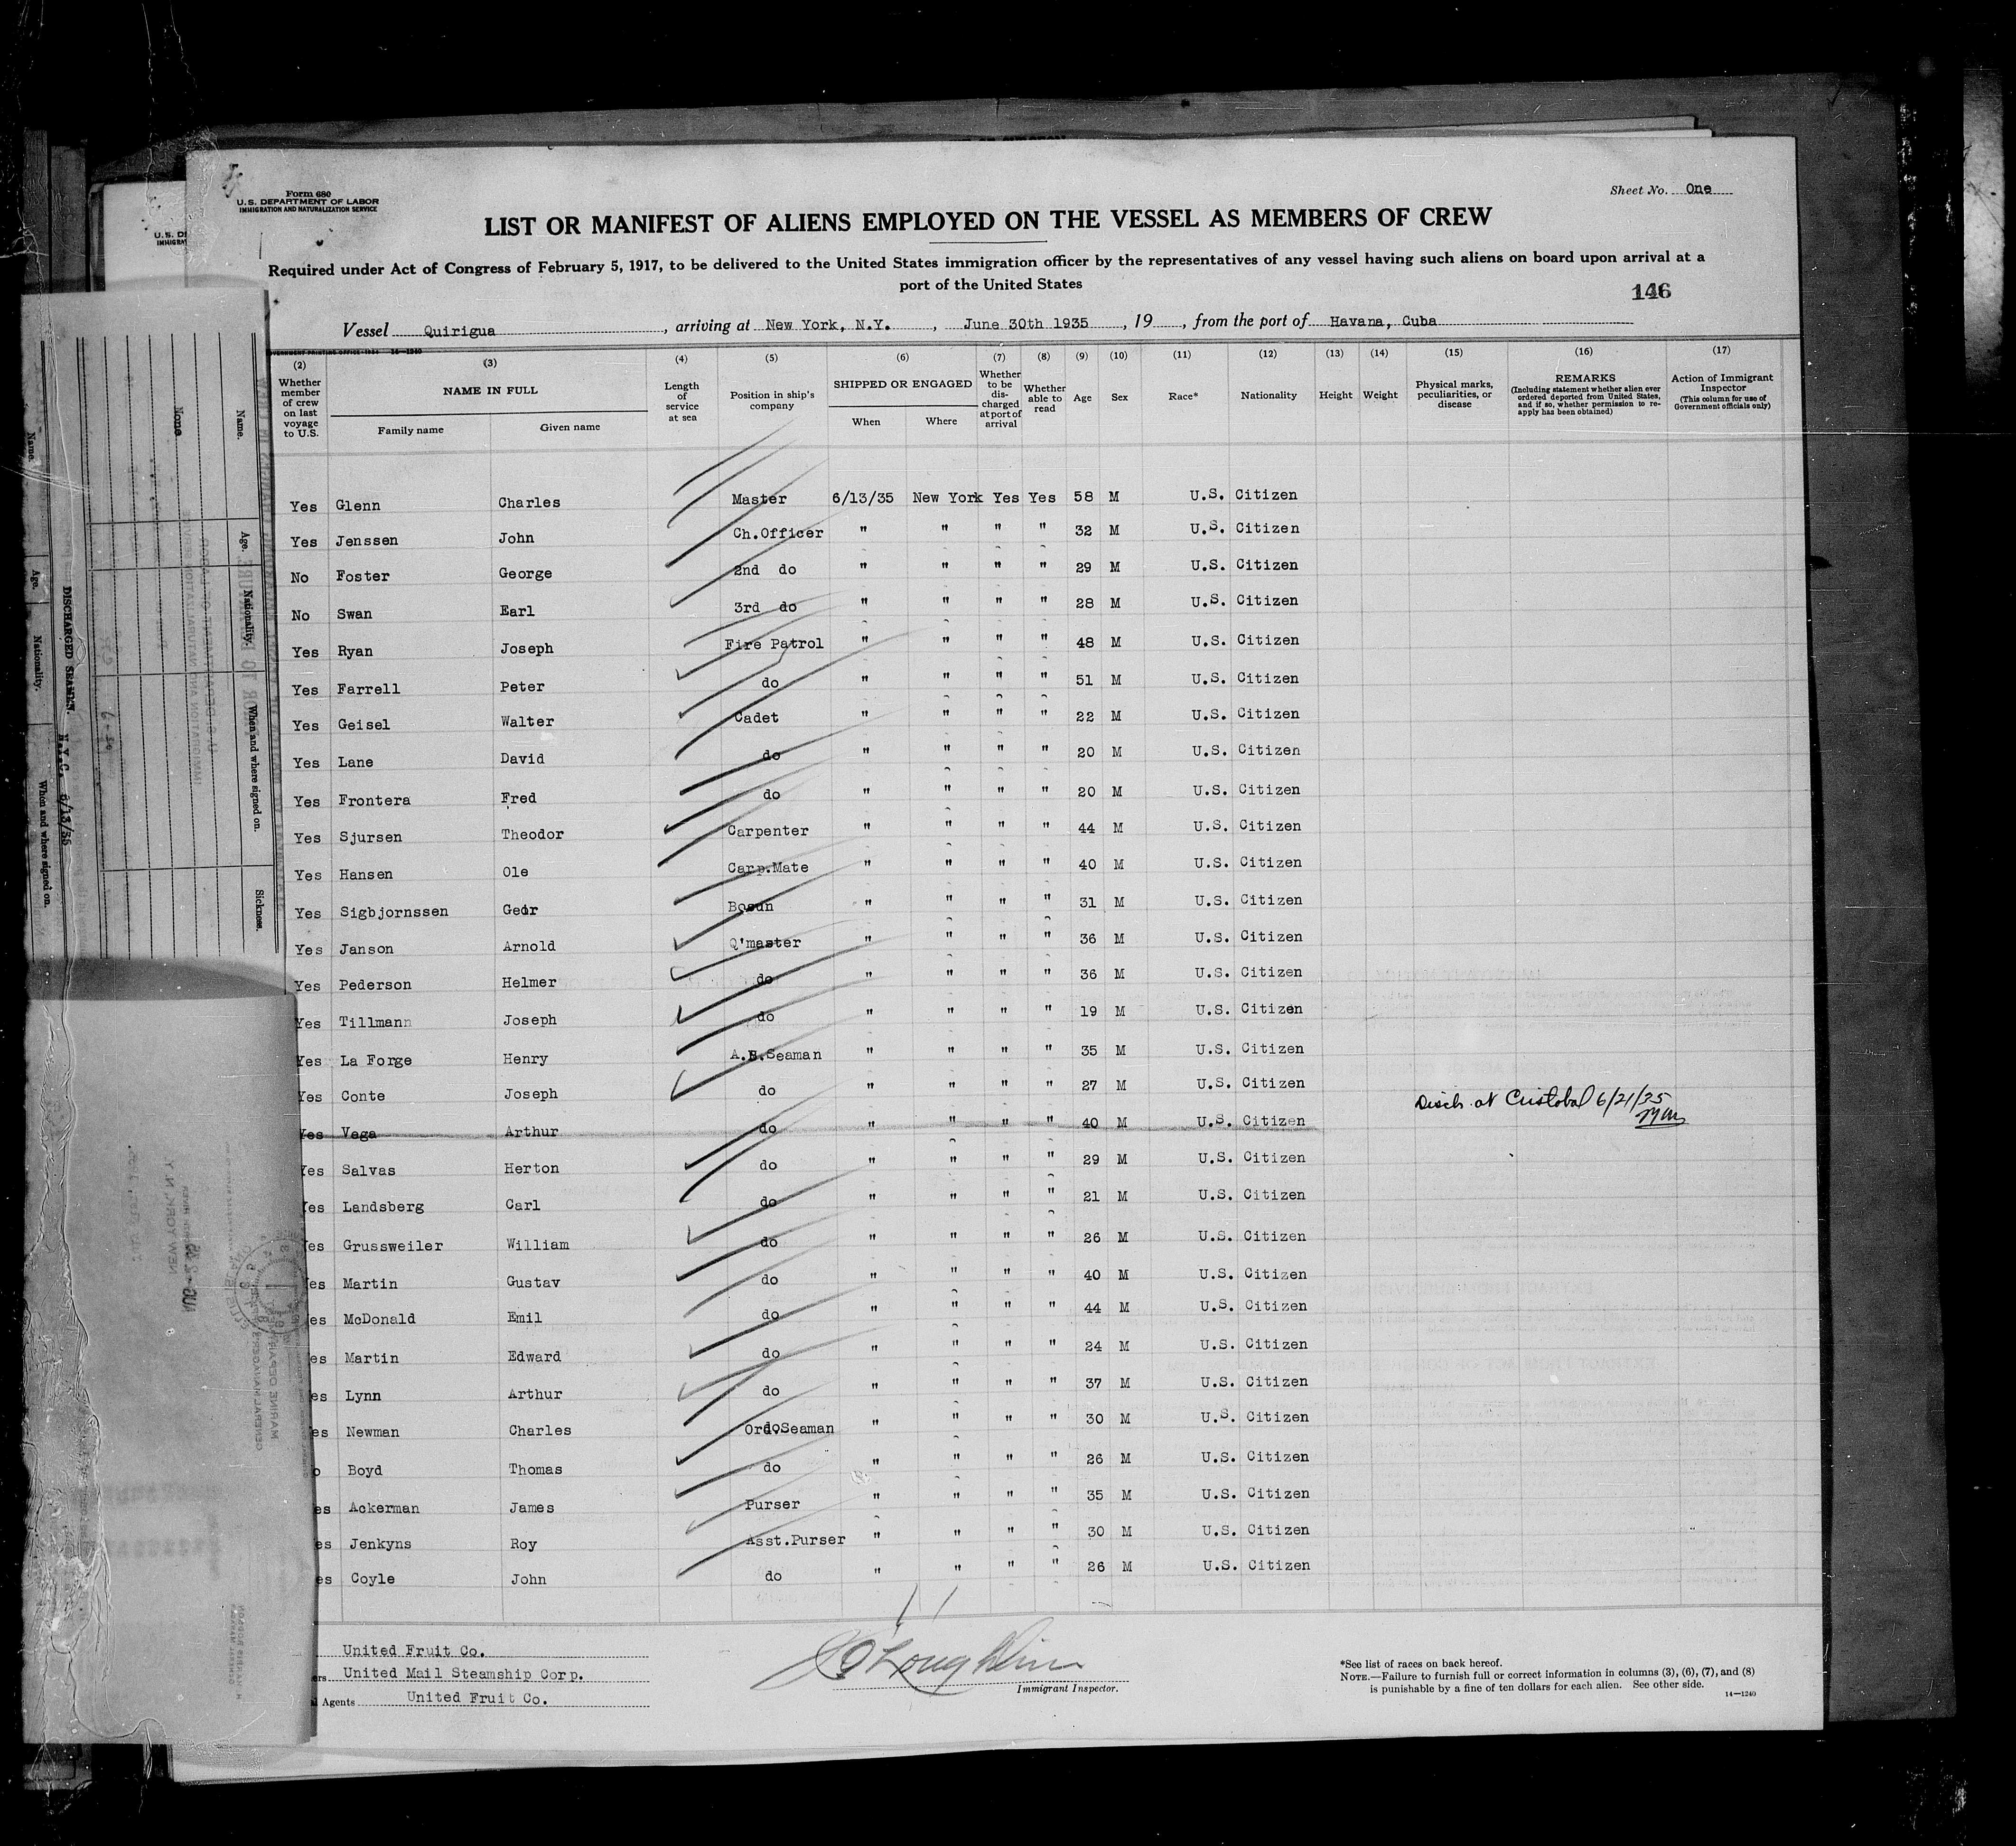 Form 680
U.S. DEPARTMENT OF LABOR
IMMIGRATION AND NATURALIZATION SERVICE
Sheet No. One
LIST OR MANIFEST OF ALIENS EMPLOYED ON THE VESSEL AS MEMBERS OF CREW
Required under Act of Congress of February 5, 1917, to be delivered to the United States immigration officer by the representatives of any vessel having such aliens on board upon arrival at a
port of the United States
146
Vessel Quirigua, arriving at New York, N.Y., June 30th 1935, 19, from the port of Havana, Cuba
(2) Whether member of crew on last voyage to U.S.
(3) NAME IN FULL Family name Given name
(4) Length of service at sea
(5) Position in ship's company
(6) SHIPPED OR ENGAGED When Where
(7) Whether to be discharged at port of arrival
(8) Whether able to read
(9) Age
(10) Sex
(11) Race*
(12) Nationality
(13) Height
(14) Weight
(15) Physical marks, peculiarities, or disease
(16) REMARKS (Including statement whether alien ever ordered deported from United States, and if so, whether permission to reapply has been obtained)
(17) Action of Immigrant Inspector (This column for use of Government officials only)
Yes Glenn Charles Master 6/13/35 New York Yes Yes 58 M U.S. Citizen
Yes Jenssen John Ch.Officer " " " " 32 M U.S. Citizen
No Foster George 2nd do " " " " 29 M U.S. Citizen
No Swan Earl 3rd do " " " " 28 M U.S. Citizen
Yes Ryan Joseph Fire Patrol " " " " 48 M U.S. Citizen
Yes Farrell Peter do " " " " 51 M U.S. Citizen
Yes Geisel Walter Cadet " " " " 22 M U.S. Citizen
Yes Lane David do " " " " 20 M U.S. Citizen
Yes Frontera Fred do " " " " 20 M U.S. Citizen
Yes Sjursen Theodor Carpenter " " " " 44 M U.S. Citizen
Yes Hansen Ole Carp.Mate " " " " 40 M U.S. Citizen
Yes Sigbjornssen Geor Bosun " " " " 31 M U.S. Citizen
Yes Janson Arnold Q'master " " " " 36 M U.S. Citizen
Yes Pederson Helmer do " " " " 36 M U.S. Citizen
Yes Tillmann Joseph do " " " " 19 M U.S. Citizen
Yes La Forge Henry A.B.Seaman " " " " 35 M U.S. Citizen
Yes Conte Joseph do " " " " 27 M U.S. Citizen
Yes Vega Arthur do " " " " 40 M U.S. Citizen Disch. at Cristobal 6/21/35
Yes Salvas Herton do " " " " 29 M U.S. Citizen
Yes Landsberg Carl do " " " " 21 M U.S. Citizen
Yes Grussweiler William do " " " " 26 M U.S. Citizen
es Martin Gustav do " " " " 40 M U.S. Citizen
es McDonald Emil do " " " " 44 M U.S. Citizen
es Martin Edward do " " " " 24 M U.S. Citizen
es Lynn Arthur do " " " " 37 M U.S. Citizen
es Newman Charles Ord.Seaman " " " " 30 M U.S. Citizen
o Boyd Thomas do " " " " 26 M U.S. Citizen
es Ackerman James Purser " " " " 35 M U.S. Citizen
es Jenkyns Roy Asst.Purser " " " " 30 M U.S. Citizen
es Coyle John do " " " " 26 M U.S. Citizen
United Fruit Co.
United Mail Steamship Corp.
Agents United Fruit Co.
Immigrant Inspector.
*See list of races on back hereof.
NOTE.—Failure to furnish full or correct information in columns (3), (6), (7), and (8)
is punishable by a fine of ten dollars for each alien. See other side.
14—1240
Name.
Age.
Nationality.
When and where signed on.
Sickness.
None
Name.
Age.
Nationality.
When and where signed on.
DISCHARGED SEAMEN. N.Y.C. 6/13/35